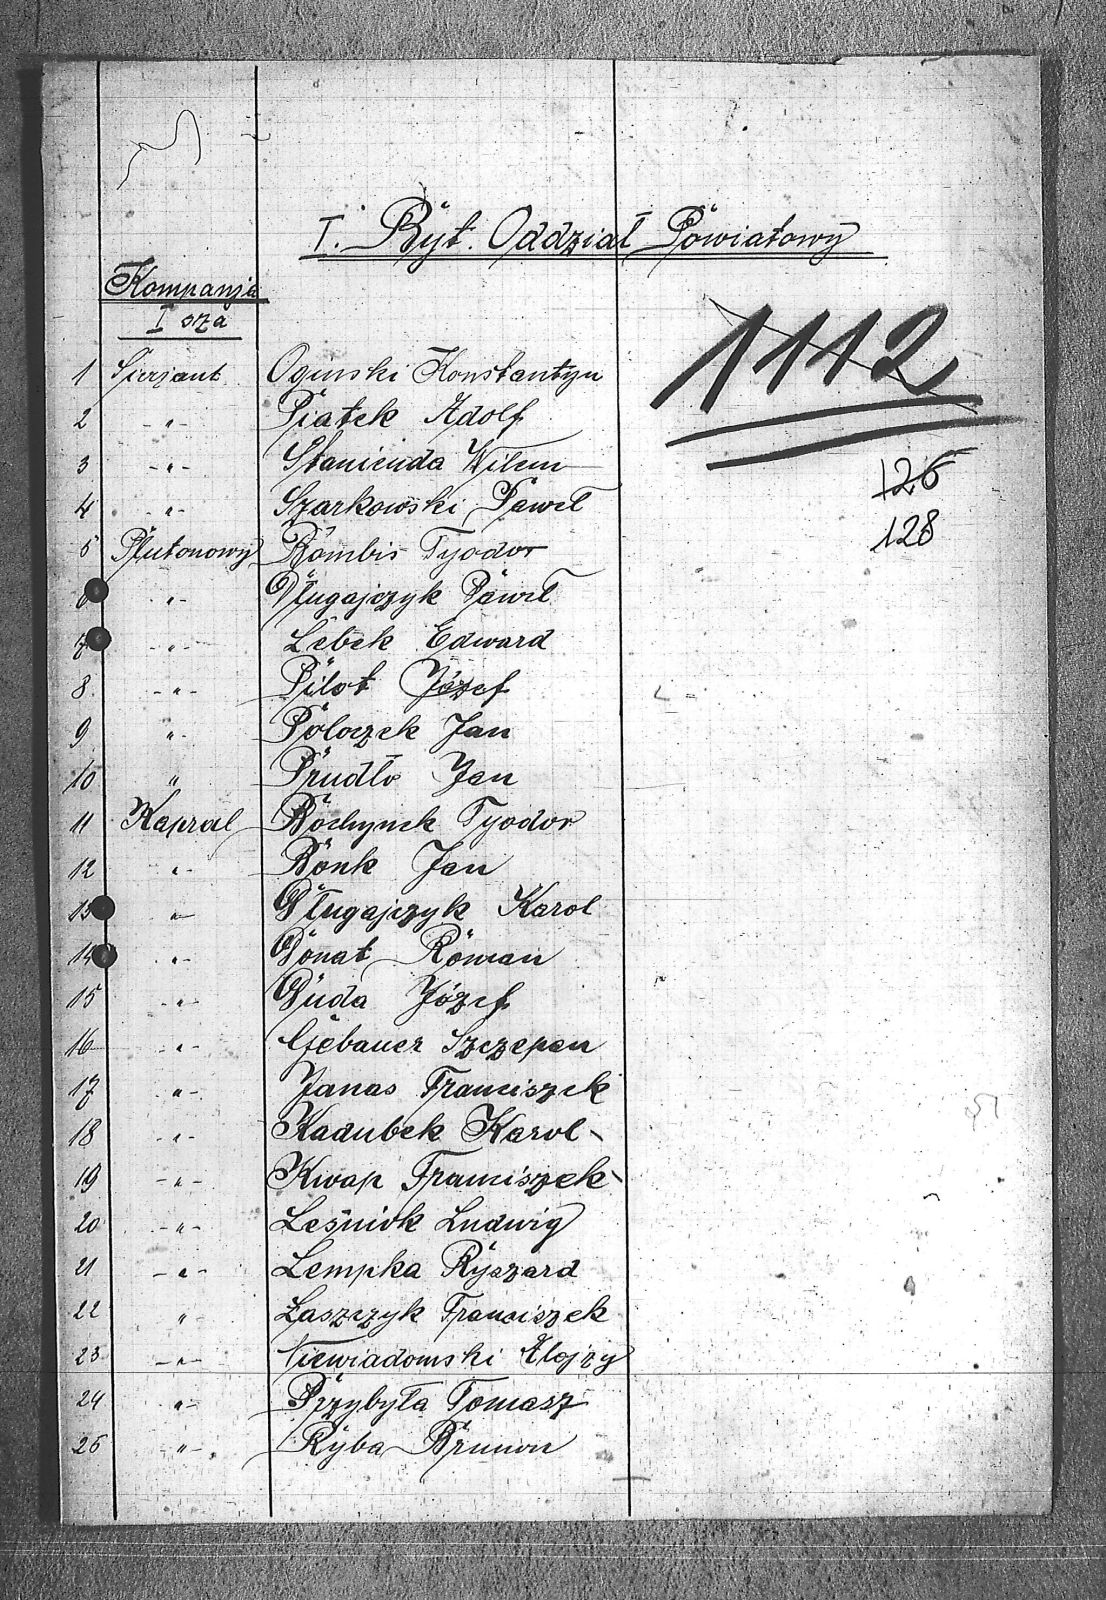 I. Byt. Oddział Powiatowy
Kompanja
I sza
1112
126
128
1 Sierjant Oginski Konstantyn
2 -"- Piatek Adolf
3 -"- Stanienda Wilem
4 -"- Szarkowski Paweł
5 Plutonowy Rombis Tyodor
6 -"- Długajczyk Paweł
7 -"- Lebek Edward
8. -"- Pilot Józef
9 "- Poloczek Jan
10 " Prudło Jan
11 Kapral Bochynek Tyodor
12 "- Bonk Jan
13 "- Długajczyk Karol
14 -"- Donat Roman
15 -"- Duda Józef
16 -"- Gebauer Szczepan
17 -"- Janas Franciszek
18 -"- Kadubek Karol
19 -"- Kwap Franciszek
20 -"- Leśniok Ludwig
21 -"- Lempka Ryszard
22 "- Łaszczyk Franciszek
23 -"- Niewiadomski Alojzy
24 -"- Przybyła Tomasz
25 -"- Ryba Brunon